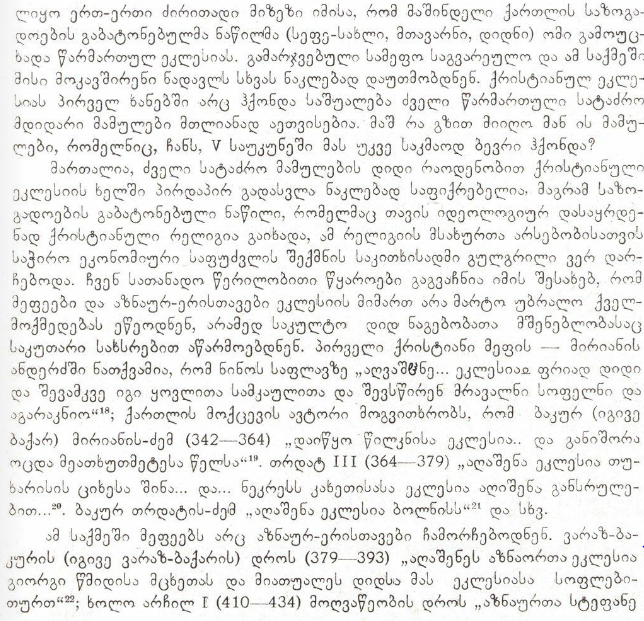 ლიყო ერთ-ერთი ძირითადი მიზეზი იმისა, რომ მაშინდელი ქართლის საზოგა-
დოების გაბატონებულმა ნაწილმა (სეფე-სახლი, მთავარნი, დიდნი) ომი გამოუც-
ხადა წარმართულ ეკლესიას. გამარჯვებული სამეფო საგვარეულო და ამ საქმეში
მისი მოკავშირენი ნადავლს სხვას ნაკლებად დაუთმობდნენ. ქრისტიანულ ეკლე-
სიას პირველ ხანებში არც ჰქონდა საშუალება ძველი წარმართული სატაძრო
მდიდარი მამულები მთლიანად აეთვისებია. მაშ რა გზით მიიღო მან ის მამუ-
ლები, რომელნიც, ჩანს, V საუკუნეში მას უკვე საკმაოდ ბევრი ჰქონდა?
მართალია, ძველი სატაძრო მამულების დიდი რაოდენობით ქრისტიანული
ეკლესიის ხელში პირდაპირ გადასვლა ნაკლებად საფიქრებელია. მაგრამ საზო-
გადოების გაბატონებული ნაწილი, რომელმაც თავის იდეოლოგიურ დასაყრდე-
ნად ქრისტიანული რელიგია გაიხადა, ამ რელიგიის მსახურთა არსებობისათვის
საჭირო ეკონომიური საფუძვლის შექმნის საკითხისადმი გულგრილი ვერ დარ-
ჩებოდა. ჩვენ სათანადო წერილობითი წყაროები გაგვაჩნია იმის შესახებ, რომ
მეფეები და აზნაურ-ერისთავები ეკლესიის მიმართ არა მარტო უბრალო ქველ-
მოქმედებას ეწეოდნენ, არამედ საკულტო დიდ ნაგებობათა მშენებლობასაც
საკუთარი სახსრებით აწარმოებდნენ. პირველი ქრისტიანი მეფის — მირიანის
ანდერძში ნათქვამია, რომ ნინოს საფლავზე „აღვაშენე... ეკლესიაჲ ფრიად დიდი
და შევამკვე იგი ყოვლითა სამკაულითა და შევსწირენ მრავალნი სოფელნი და
აგარაკნიო“¹⁸; ქართლის მოქცევის ავტორი მოგვითხრობს, რომ ბაკურ (იგივე
ბაქარ) მირიანის-ძემ (342—364) „დაიწყო წილკნისა ეკლესია.. და განიშორა
ოცდა მეათხუთმეტესა წელსა“¹⁹. თრდატ III (364—379) „აღაშენა ეკლესია თუ-
ხარისის ციხესა შინა... და... ნეკრესს კახეთისასა ეკლესია აღიშენა განსრულე-
ბით...²⁰. ბაკურ თრდატის-ძემ „აღაშენა ეკლესია ბოლნისს“²¹ და სხვ.
ამ საქმეში მეფეებს არც აზნაურ-ერისთავები ჩამორჩებოდნენ. ვარაზ-ბა-
კურის (იგივე ვარაზ-ბაქარის) დროს (379—393) „აღაშენეს აზნაორთა ეკლესია
გიორგი წმიდისა მცხეთას და მიათუალეს დიდსა მას ეკლესიასა სოფლები-
თურთ“²²; ხოლო არჩილ I (410—434) მოღვაწეობის დროს „აზნაურთა სტეფანე